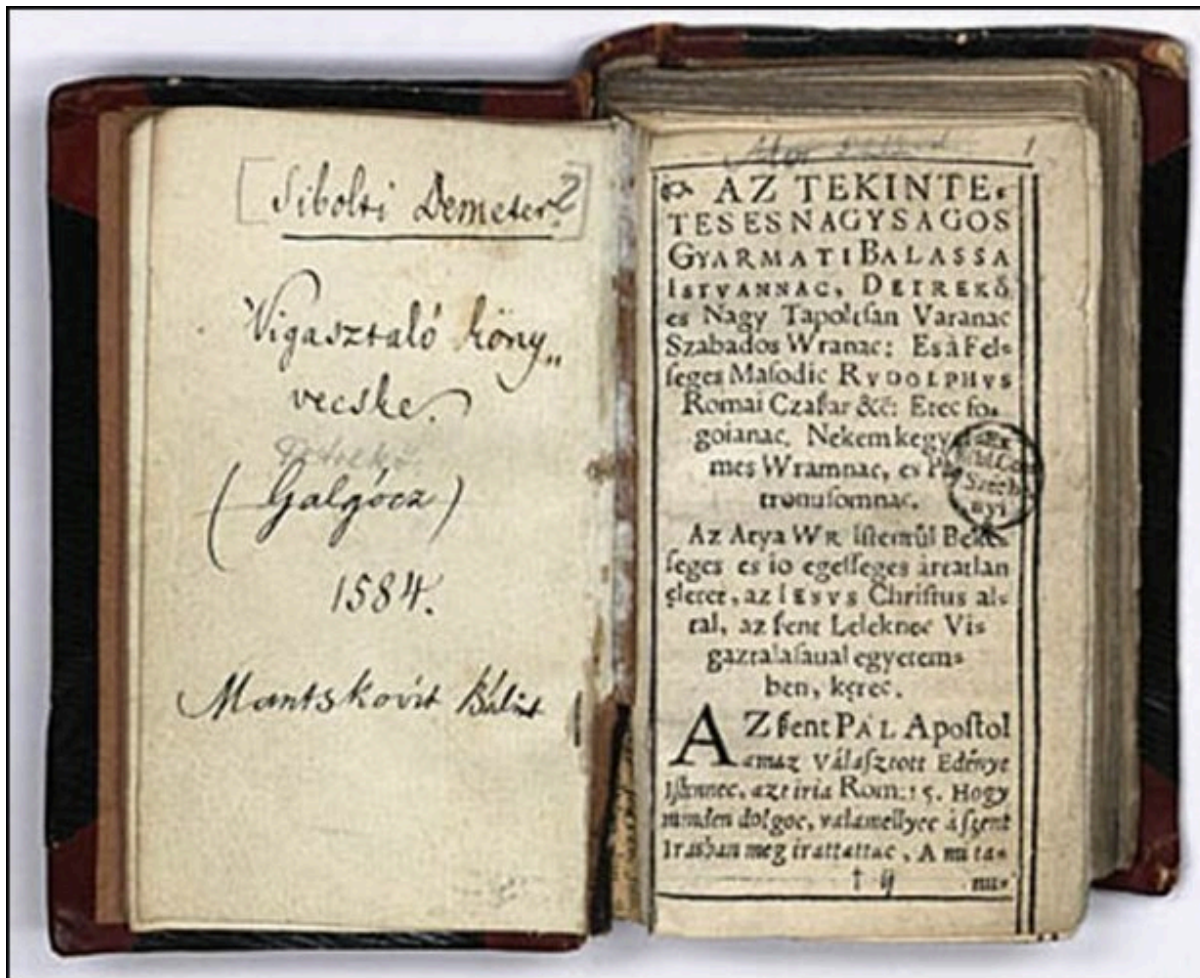 [Sibolti Demeter?]
Vigasztaló köny„
vecske.
Detrekő.
(Galgócz)
1584.
Mantskovit Bálint
1
AZ TEKINTE-
TES ES NAGYSAGOS
GYARMATI BALASSA
ISTVANNAC, DETREKŐ
es Nagy Tapoltſan Varanac
Szabados Wranac: Es à Fel-
ſeges Maſodic RVDOLPHVS
Romai Czaſar &c: Etec fo-
goianac, Nekem kegyel-
mes Wramnac, es Pa-
tronuſomnac.
Ex
Bibl. Com.
Széch-
nyi
Az Atya WR Iſtentűl Beke-
ſeges es io egeſſeges ártatlan
eletet, az IESVS Chriſtus al-
tal, az ſent Leleknec Vis
gaztalaſaual egyetem-
ben, kęrec.
AZ ſent PÁL Apoſtol
amaz Válaſztott Edénye
Iſtennec, azt iria Rom: 15. Hogy
minden dolgoc, valamellyec á ſzent
Irasban meg irattattac, A mi ta-
† ij nu-